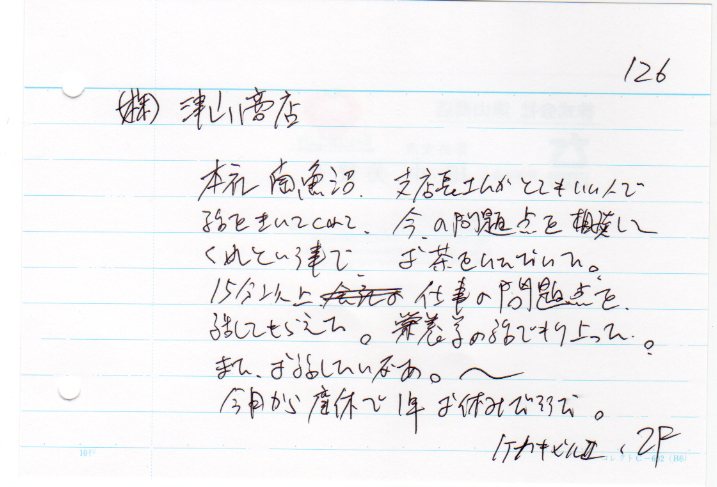 126
(株) 津山商店
本社 南魚沼. 支店長さんがとてもいい人で
話をきいてくれて、今の問題点を相談して
くれという事で、お茶をいただいた。
15分以上 仕事の問題点を、
話してもらえた。栄養学の話でもり上った。
また、お話したいなあ。〜
今月から産休で1年お休みだそうだ。
2F